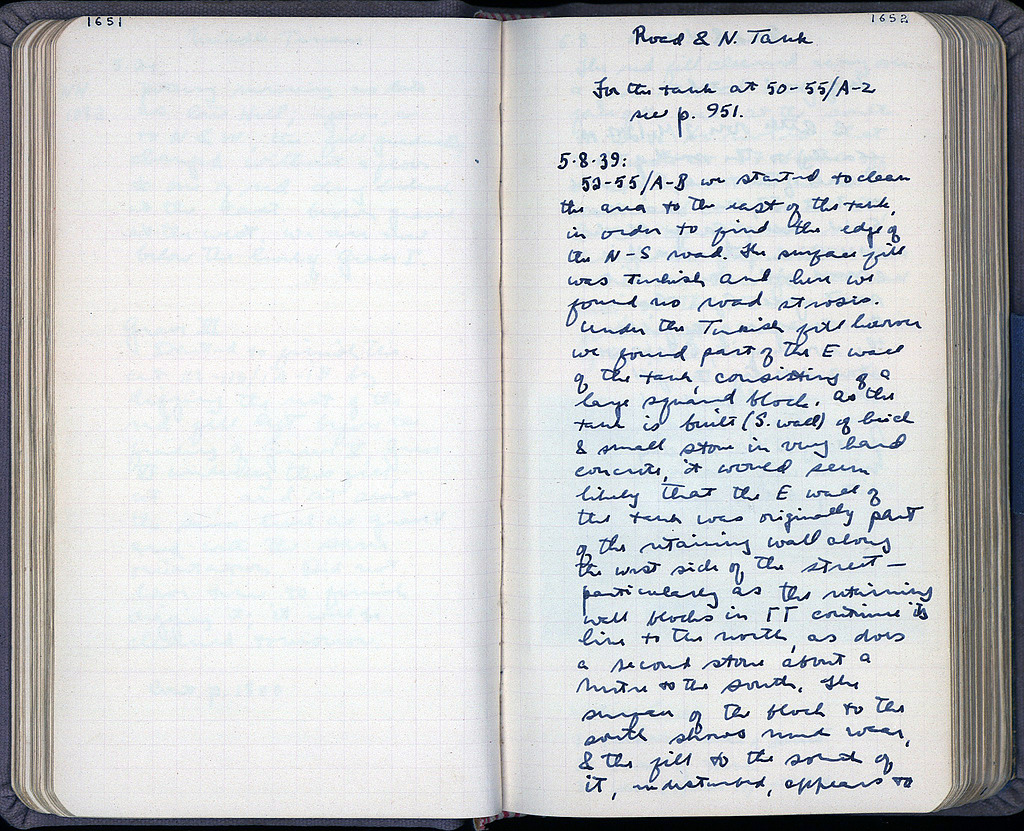 1651
1652
Road & N. Tank
For the tank at 50-55/A-2
see p. 951.
5·8·39:
53-55/A-B we started to clean
the area to the east of the tank,
in order to find the edge of
the N-S road. The surface fill
was Turkish and here we
found no road strosis.
Under the Turkish fill however
we found part of the E wall
of the tank, consisting of a
large squared block. As the
tank is built (S. wall) of brick
& small stone in very hard
concrete, it would seem
likely that the E wall of
the tank was originally part
of the retaining wall along
the west side of the street —
particularly as the retaining
wall blocks in ΓΓ continue its
line to the north, as does
a second stone about a
metre to the south. The
surface of the block to the
south shows much wear,
& the fill to the south of
it, undisturbed, appears to